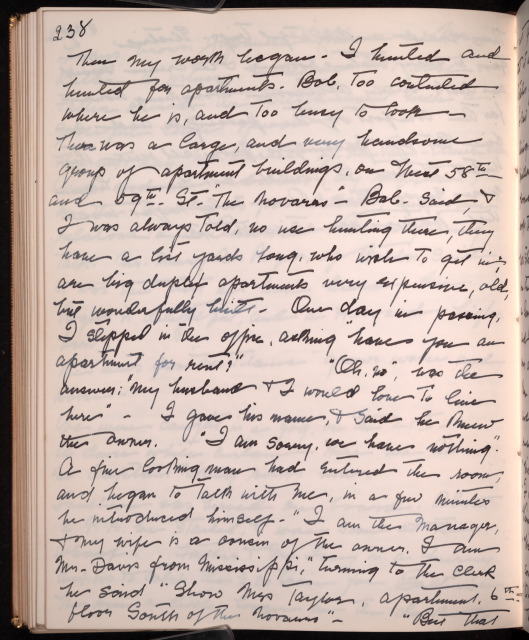 238
Then my work began - I hunted and
hunted for apartments. Bob, too contented
where he is, and too busy to look -
There was a large, and very handsome
group of apartment buildings, on West 58th
and 59th St. "The Navarro" - Bob said, &
I was always told, no use hunting there, they
have a list yards long, who wish to get in;
are big duplex apartments very expensive, old,
but wonderfully built - One day in passing,
I stepped in the office, asking "have you an
apartment for rent?" "Oh, no", was the
answer; "My husband & I would love to live
here" - I gave his name, & said he knew
the owner. "I am sorry, we have nothing".
A fine looking man had entered the room,
and began to talk with me, in a few minutes
he introduced himself - "I am the Manager,
& my wife is a cousin of the owner. I am
Mr. Davis from Mississippi," turning to the clerk
he said "Show Mrs Taylor, apartment, 6th
floor South of the Navarro" - "But that